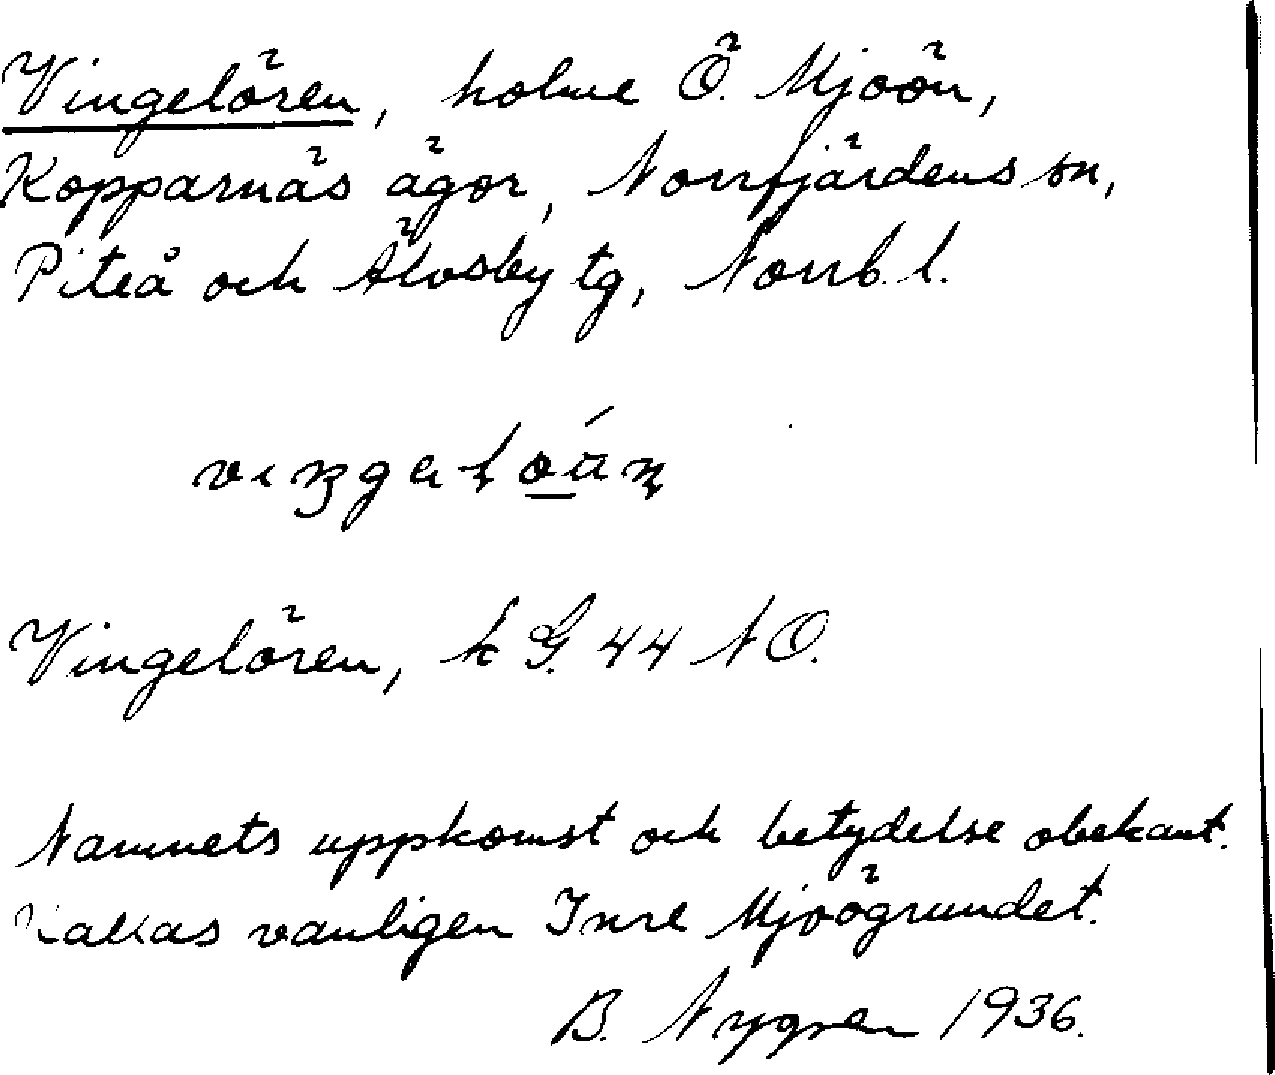 Vingelören, holme Ö. Mjoön,
Kopparnäs ägor, Norrfjärdens sn,
Piteå och Älvsby tg, Norrb. l.
Vingelören, k G. 44 NO.
Namnets uppkomst och betydelse obekant.
Kallas vanligen Inre Mjoögrundet.
B. Nygren 1936.